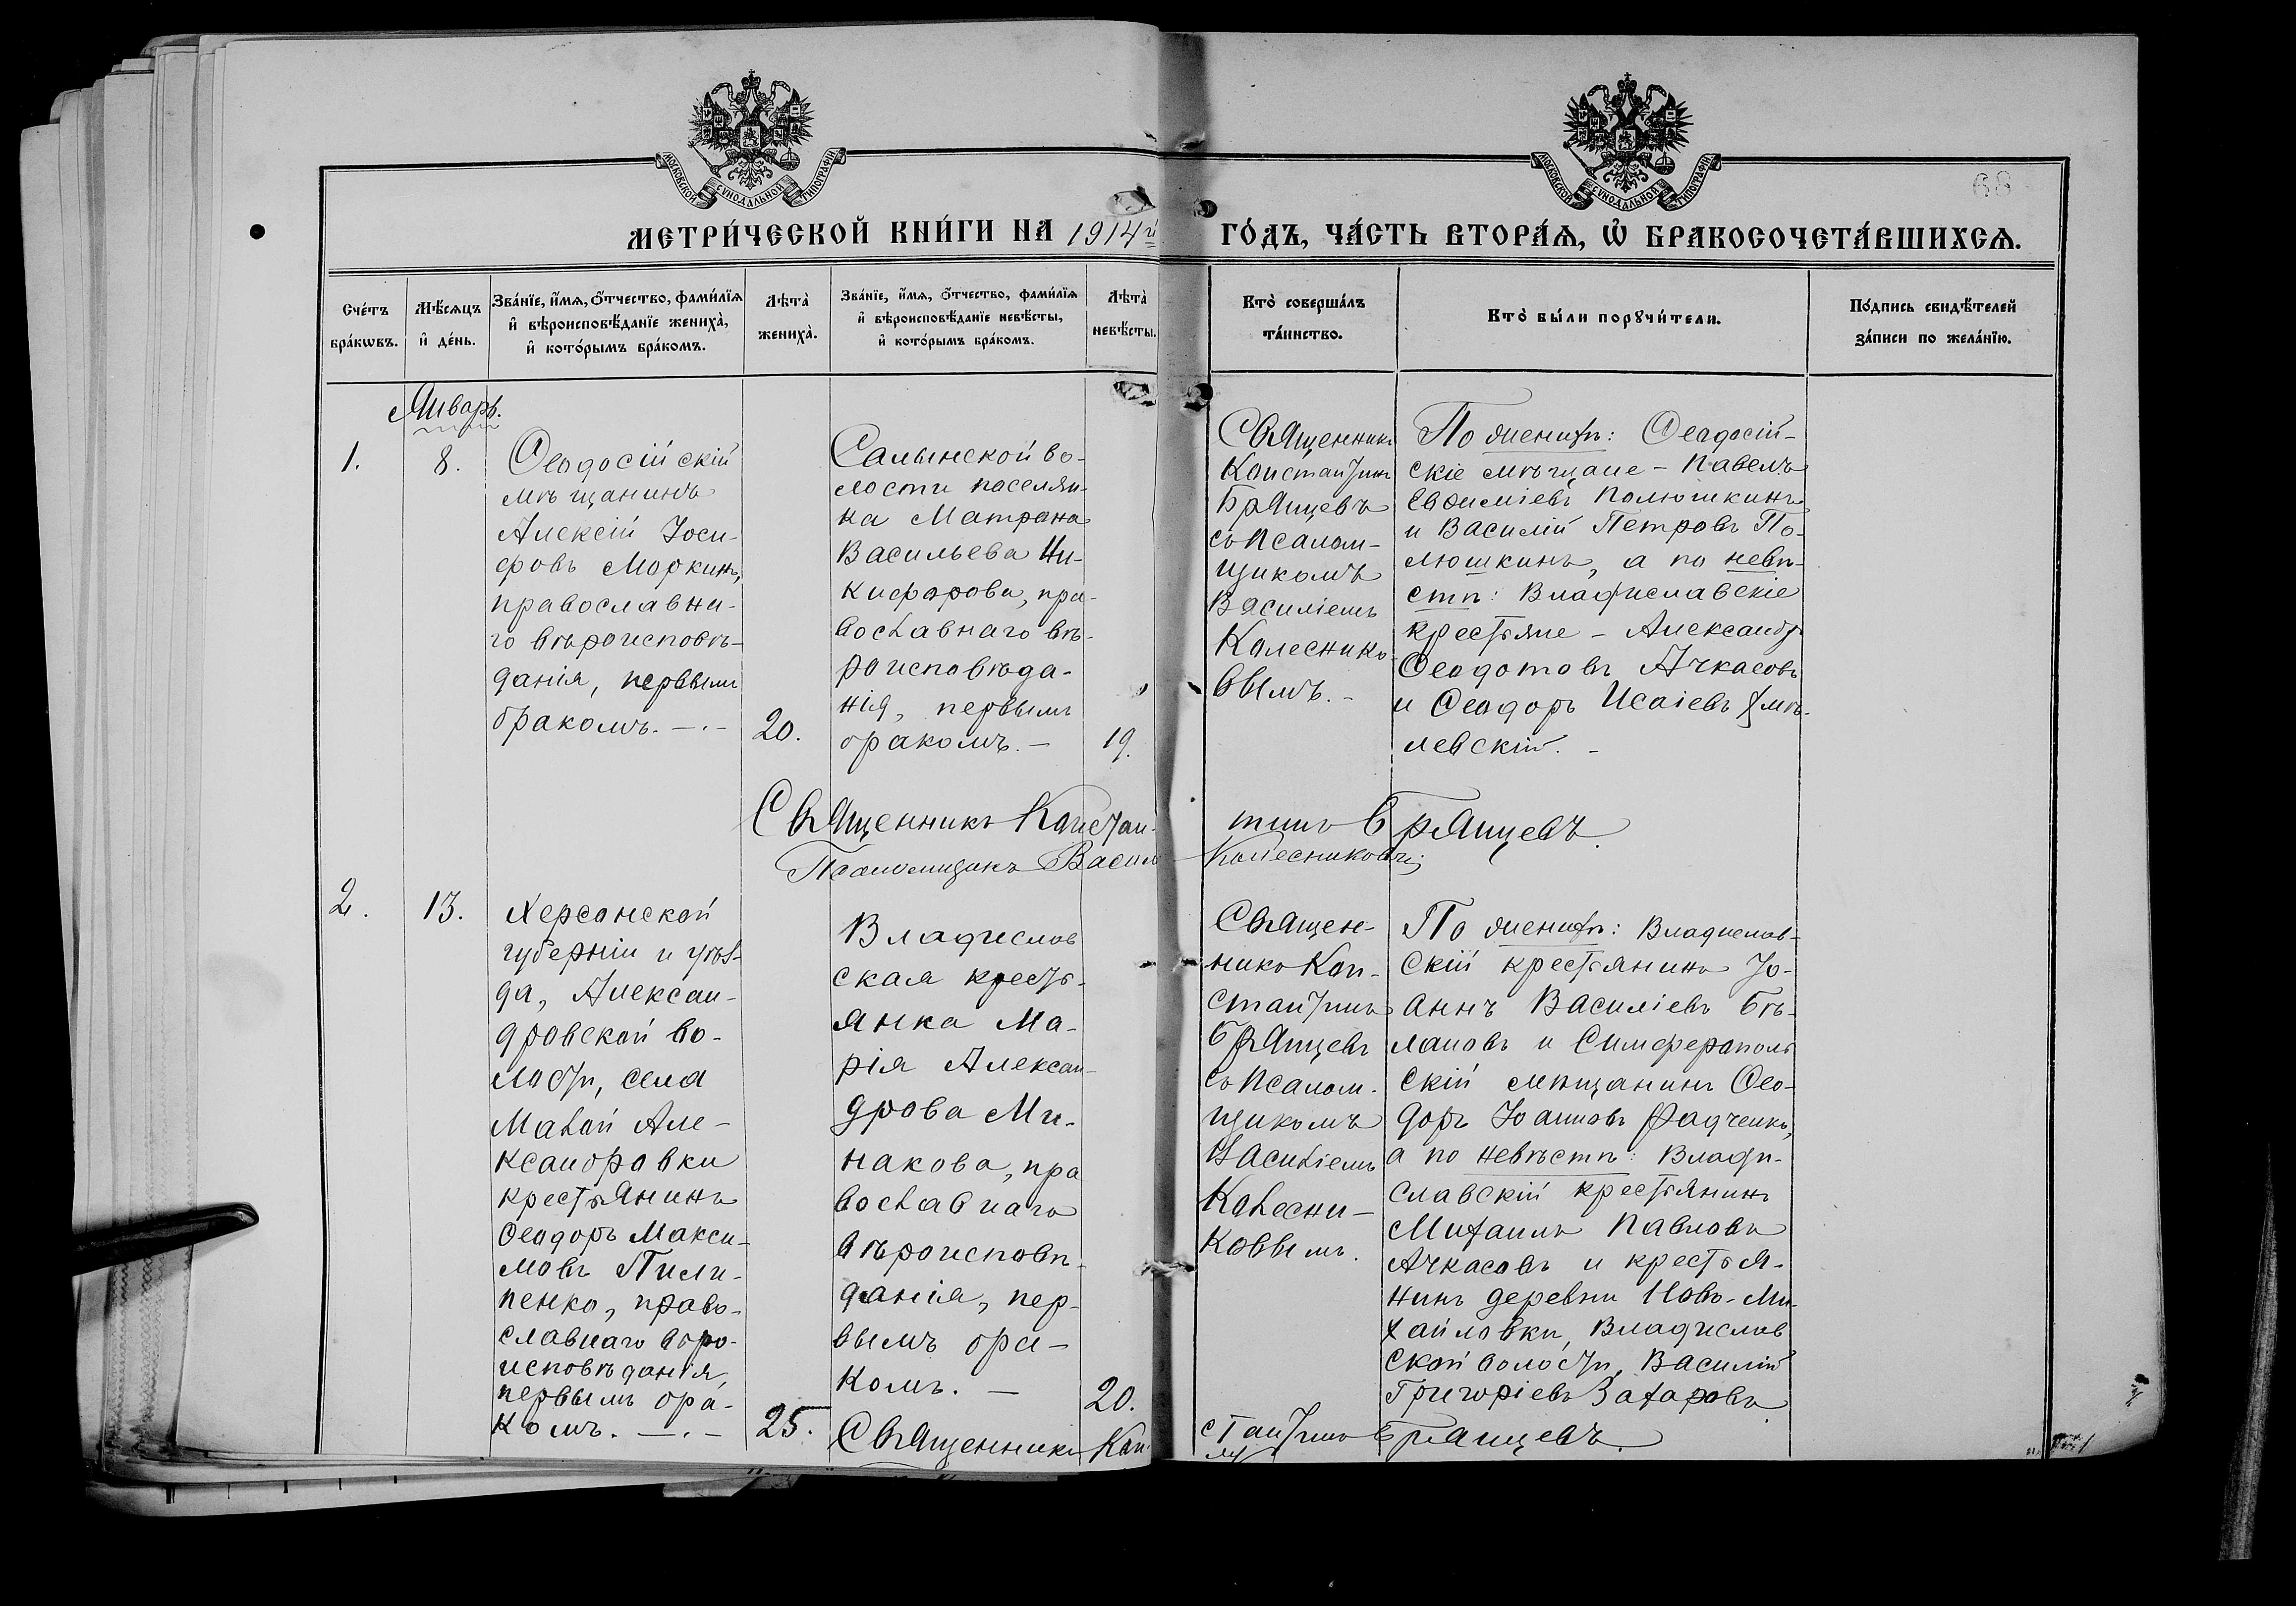 МОСКОВСКОЙ СУНОДАЛЬНОЙ ТИПОГРАФІИ
МОСКОВСКОЙ СУНОДАЛЬНОЙ ТИПОГРАФІИ
68
МЕТРИ́ЧЕСКОЙ КНИ́ГИ НА 1914й ГО́ДЪ, ЧА́СТЬ ВТОРА́Ѧ, Ѡ҆ БРАКОСОЧЕТА́ВШИХСѦ.
Сче́тъ
бра́кѡвъ.
Мѣ́сѧцъ
и҆ де́нь.
Зва́нїе, и҆́мѧ, ѻ҆́тчество, фами́лїѧ
и҆ вѣроисповѣ́данїе жениха̀,
и҆ кото́рымъ бра́комъ.
Лѣта̀
жениха̀.
Зва́нїе, и҆́мѧ, ѻ҆́тчество, фами́лїѧ
и҆ вѣроисповѣ́данїе невѣ́сты,
и҆ кото́рымъ бра́комъ.
Лѣта̀
невѣ́сты.
Кто̀ соверша́лъ
та́инство.
Кто̀ бы́ли порꙋчи́тели.
По́дпись свидѣ́телей
за́писи по жела́нїю.
Январь.
1.
8.
Ѳеодосійскій
мѣщанинъ
Алексій Іоси-
фовъ Моркинъ,
православна-
го вѣроисповѣ-
данія, первымъ
бракомъ. —.—
20.
Салынской во-
лости поселян-
ка Матрона
Васильева Ни-
кифорова, пра-
вославнаго вѣ-
роисповѣда-
нія, первымъ
бракомъ. —
19.
Священникъ
Константинъ
Брянцевъ
съ псалом-
щикомъ
Василіемъ
Колеснико-
вымъ. -
По женихѣ: Ѳеодосій-
скіе мѣщане - Павелъ
Евѳиміевъ Полюшкинъ
и Василій Петровъ По-
люшкинъ, а по невѣ-
стѣ: Владиславскіе
крестьяне - Александръ
Ѳеодотовъ Ачкасовъ
и Ѳеодоръ Исаіевъ
левскій. -
Священникъ Константинъ Брянцевъ.
Псаломщикъ Васил Колесниковъ
2.
13.
Херсонской
губерніи и уѣз-
да, Алексан-
дровской во-
лости, села
Малой Але-
ксандровки
крестьянинъ
Ѳеодоръ Макси-
мовъ Пили-
пенко, право-
славнаго вѣро-
исповѣданія,
первымъ бра-
комъ. —.—
25.
Владислав
ская кресть-
янка Ма-
рія Алексан-
дрова Ми-
накова, пра
вославнаго
вѣроисповѣ-
данія, пер-
вымъ бра-
комъ. —
20.
Священ-
никъ Кон-
стантинъ
Брянцевъ
съ псалом-
щикомъ
Василіемъ
Колесни-
ковымъ.
По женихѣ: Владислав-
скій крестьянинъ Іо-
аннъ Василіевъ Бѣ-
лановъ и Симферополь
скій мѣщанинъ Ѳео-
доръ Іоанновъ Радченко,
а по невѣстѣ: Влади-
славскій крестьянинъ
Михаилъ Павловъ
Ачкасовъ и крестья-
нинъ деревни Ново-Ми-
хайловки, Владислав
ской волости, Василій
Григоріевъ Захаровъ.
Священникъ Константинъ Брянцевъ.